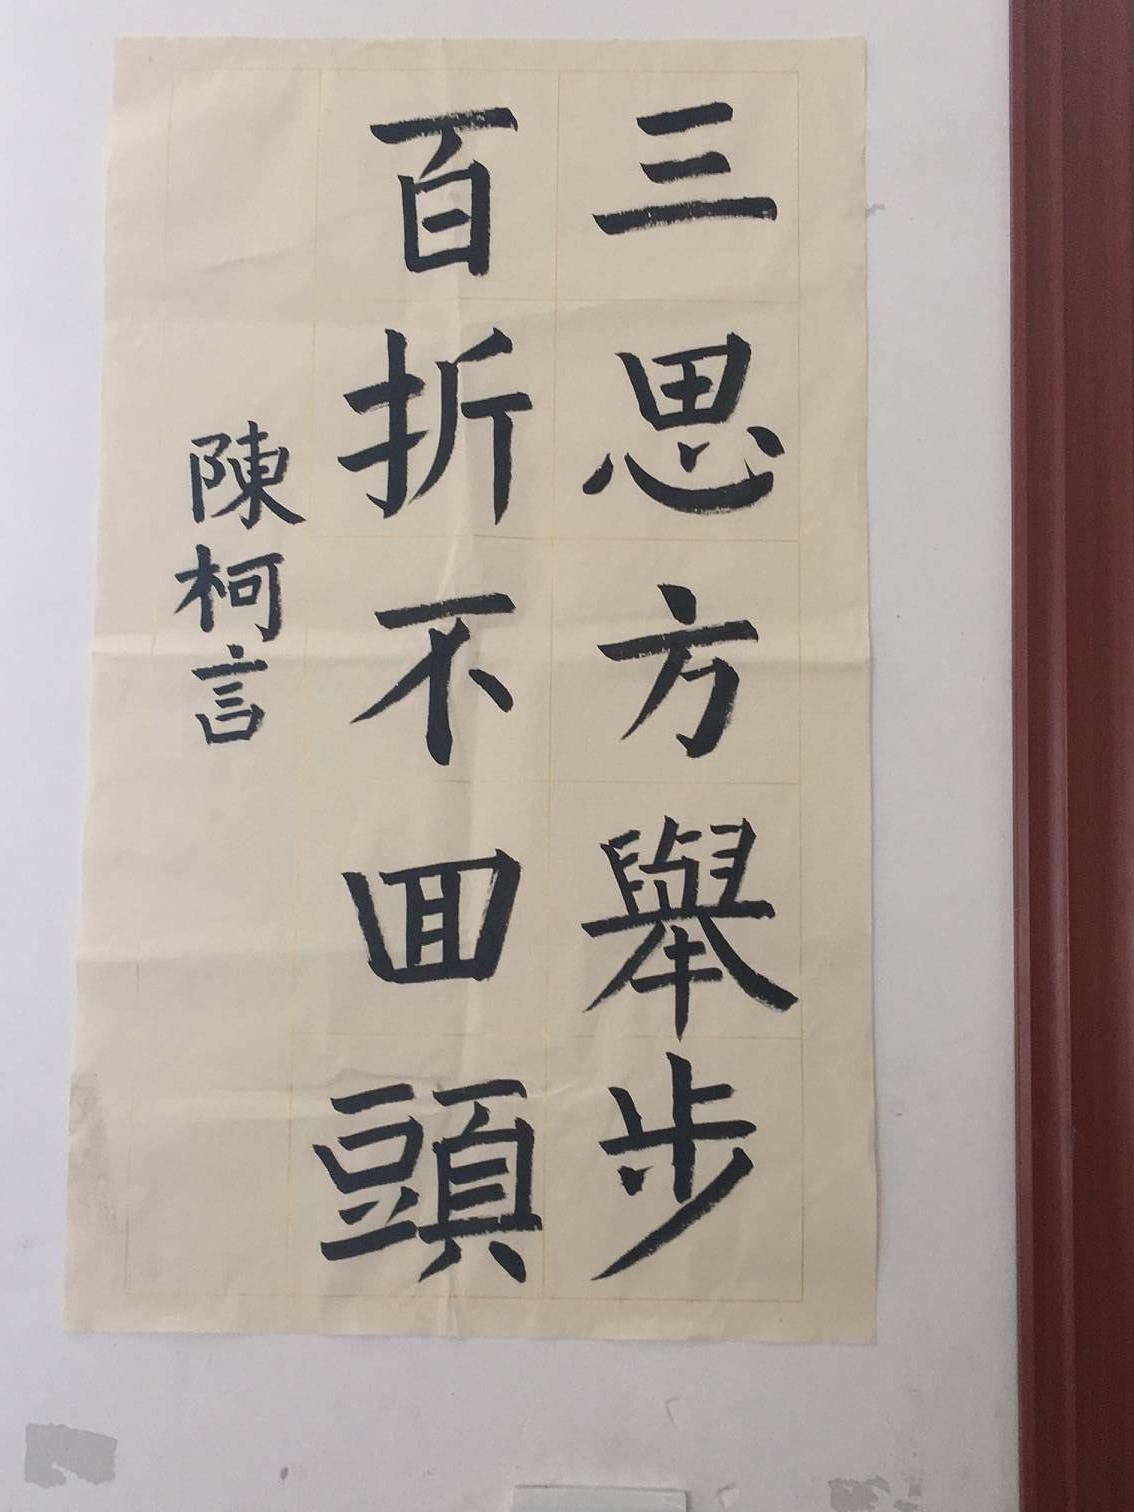 三思方舉步
百折不回頭
陳柯言